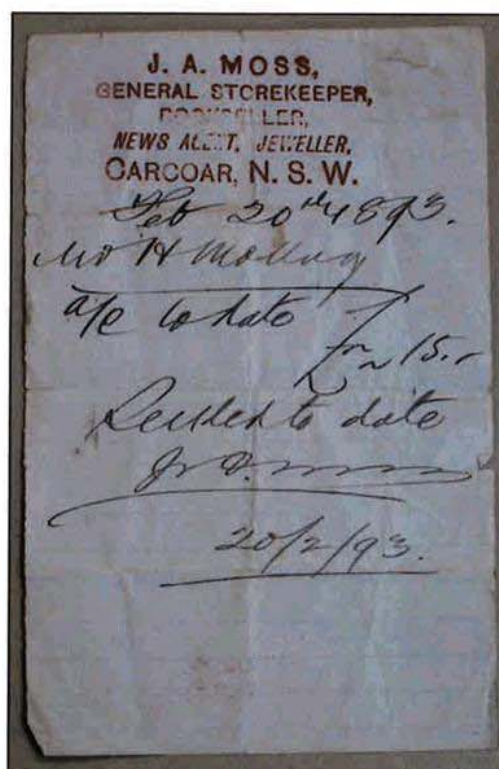 J. A. MOSS,
GENERAL STOREKEEPER,
BOOKSELLER,
NEWS AGENT, JEWELLER,
CARCOAR, N. S. W.
Feb 20th 1893.
Mr H
a/c to date
£ ~ ~ 15. -
Settled to date
J. A. Moss
20/2/93.